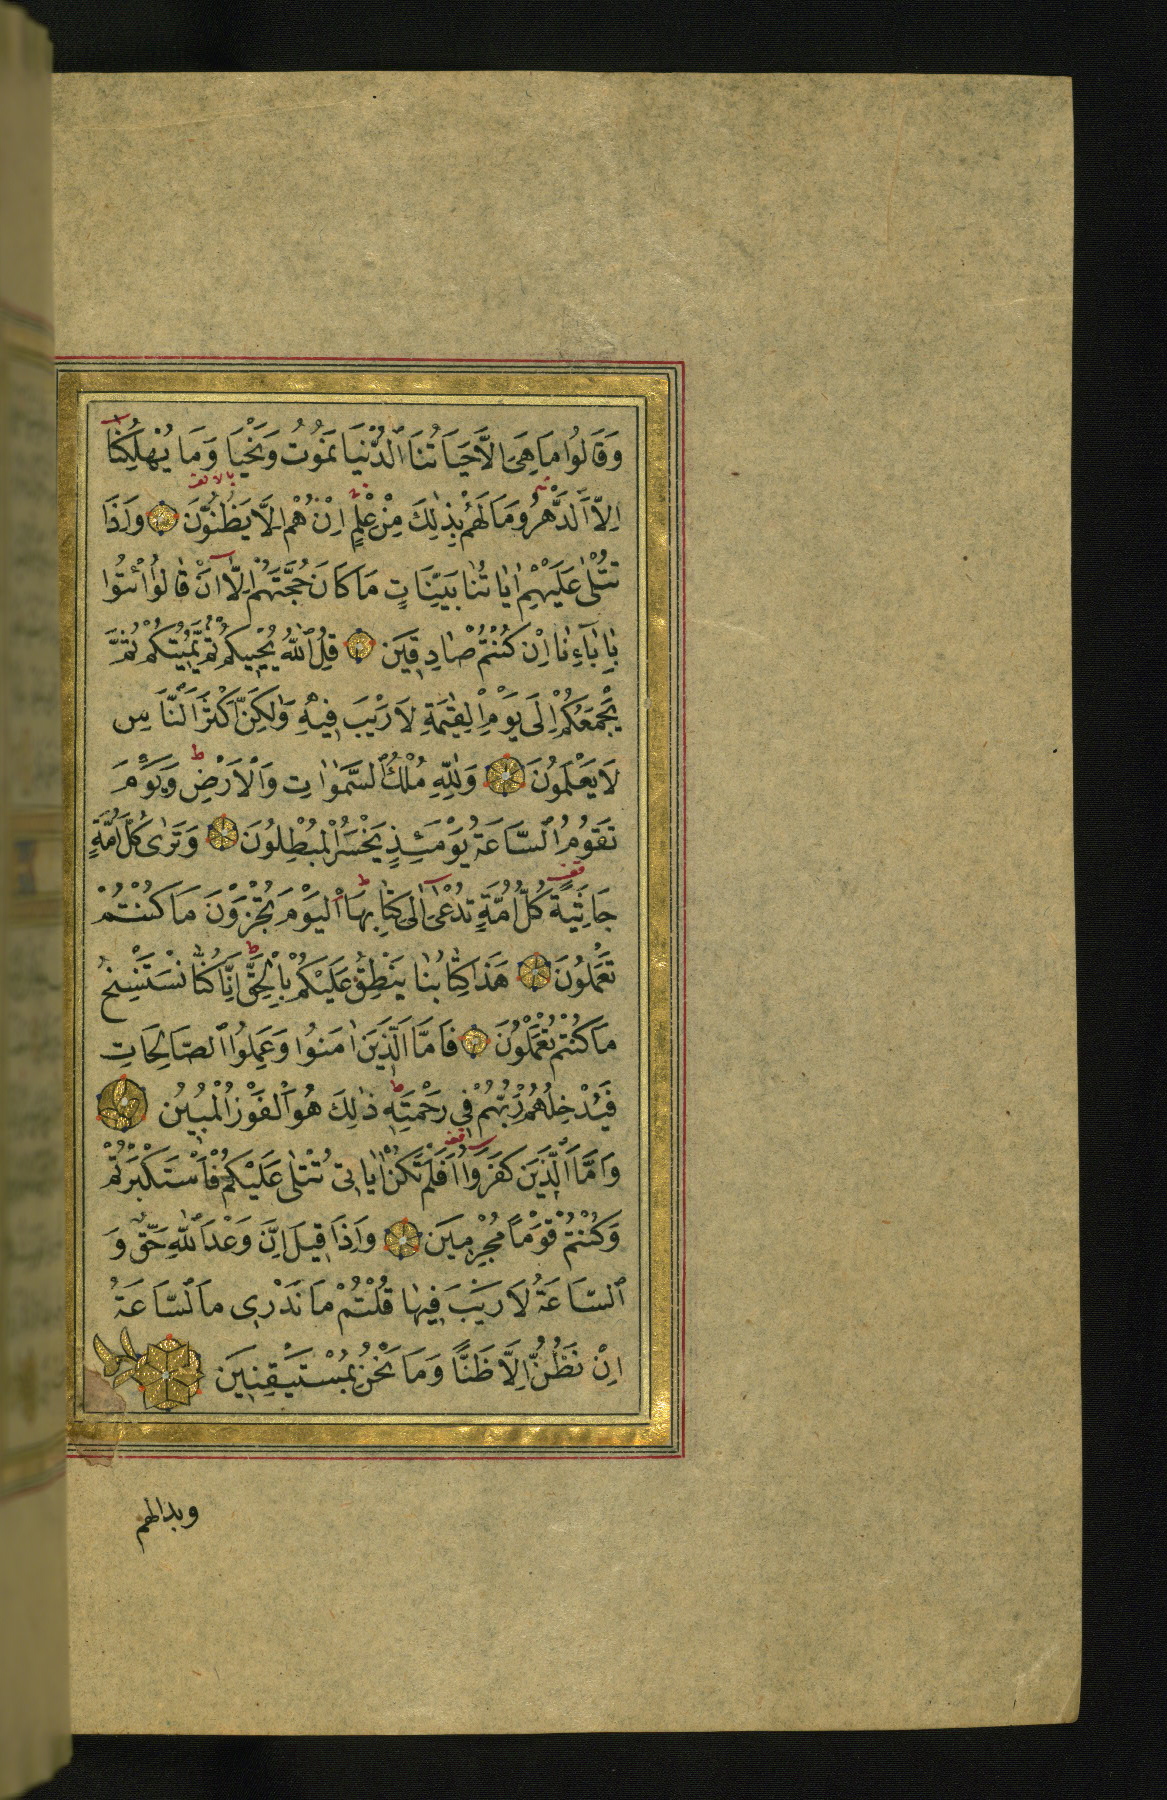 وَقَالُوا مَا هِيَ اِلَّا حَيَاتُنَا الدُّنْيَا نَمُوتُ وَنَحْيَا وَمَا يُهْلِكُنَا
اِلَّا الدَّهْرُ وَمَا لَهُمْ بِذٰلِكَ مِنْ عِلْمٍ اِنْ هُمْ اِلَّا يَظُنُّونَ وَاِذَا
تُتْلٰى عَلَيْهِمْ اٰيَاتُنَا بَيِّنَاتٍ مَا كَانَ حُجَّتَهُمْ اِلَّا اَنْ قَالُوا ائْتُوا
بِاٰبَائِنَا اِنْ كُنْتُمْ صَادِقِينَ قُلِ اللّٰهُ يُحْيِيكُمْ ثُمَّ يُمِيتُكُمْ ثُمَّ
يَجْمَعُكُمْ اِلٰى يَوْمِ الْقِيٰمَةِ لَا رَيْبَ فِيهِ وَلٰكِنَّ اَكْثَرَ النَّاسِ
لَا يَعْلَمُونَ وَلِلّٰهِ مُلْكُ السَّمٰوَاتِ وَالْاَرْضِ وَيَوْمَ
تَقُومُ السَّاعَةُ يَوْمَئِذٍ يَخْسَرُ الْمُبْطِلُونَ وَتَرٰى كُلَّ اُمَّةٍ
جَاثِيَةً كُلُّ اُمَّةٍ تُدْعٰى اِلٰى كِتَابِهَا اَلْيَوْمَ تُجْزَوْنَ مَا كُنْتُمْ
تَعْمَلُونَ هٰذَا كِتَابُنَا يَنْطِقُ عَلَيْكُمْ بِالْحَقِّ اِنَّا كُنَّا نَسْتَنْسِخُ
مَا كُنْتُمْ تَعْمَلُونَ فَاَمَّا الَّذِينَ اٰمَنُوا وَعَمِلُوا الصَّالِحَاتِ
فَيُدْخِلُهُمْ رَبُّهُمْ فِي رَحْمَتِهِ ذٰلِكَ هُوَ الْفَوْزُ الْمُبِينُ
وَاَمَّا الَّذِينَ كَفَرُوا اَفَلَمْ تَكُنْ اٰيَاتِي تُتْلٰى عَلَيْكُمْ فَاسْتَكْبَرْتُمْ
وَكُنْتُمْ قَوْمًا مُجْرِمِينَ وَاِذَا قِيلَ اِنَّ وَعْدَ اللّٰهِ حَقٌّ وَ
السَّاعَةُ لَا رَيْبَ فِيهَا قُلْتُمْ مَا نَدْرِي مَا السَّاعَةُ
اِنْ نَظُنُّ اِلَّا ظَنًّا وَمَا نَحْنُ بِمُسْتَيْقِنِينَ
وبدا لهم